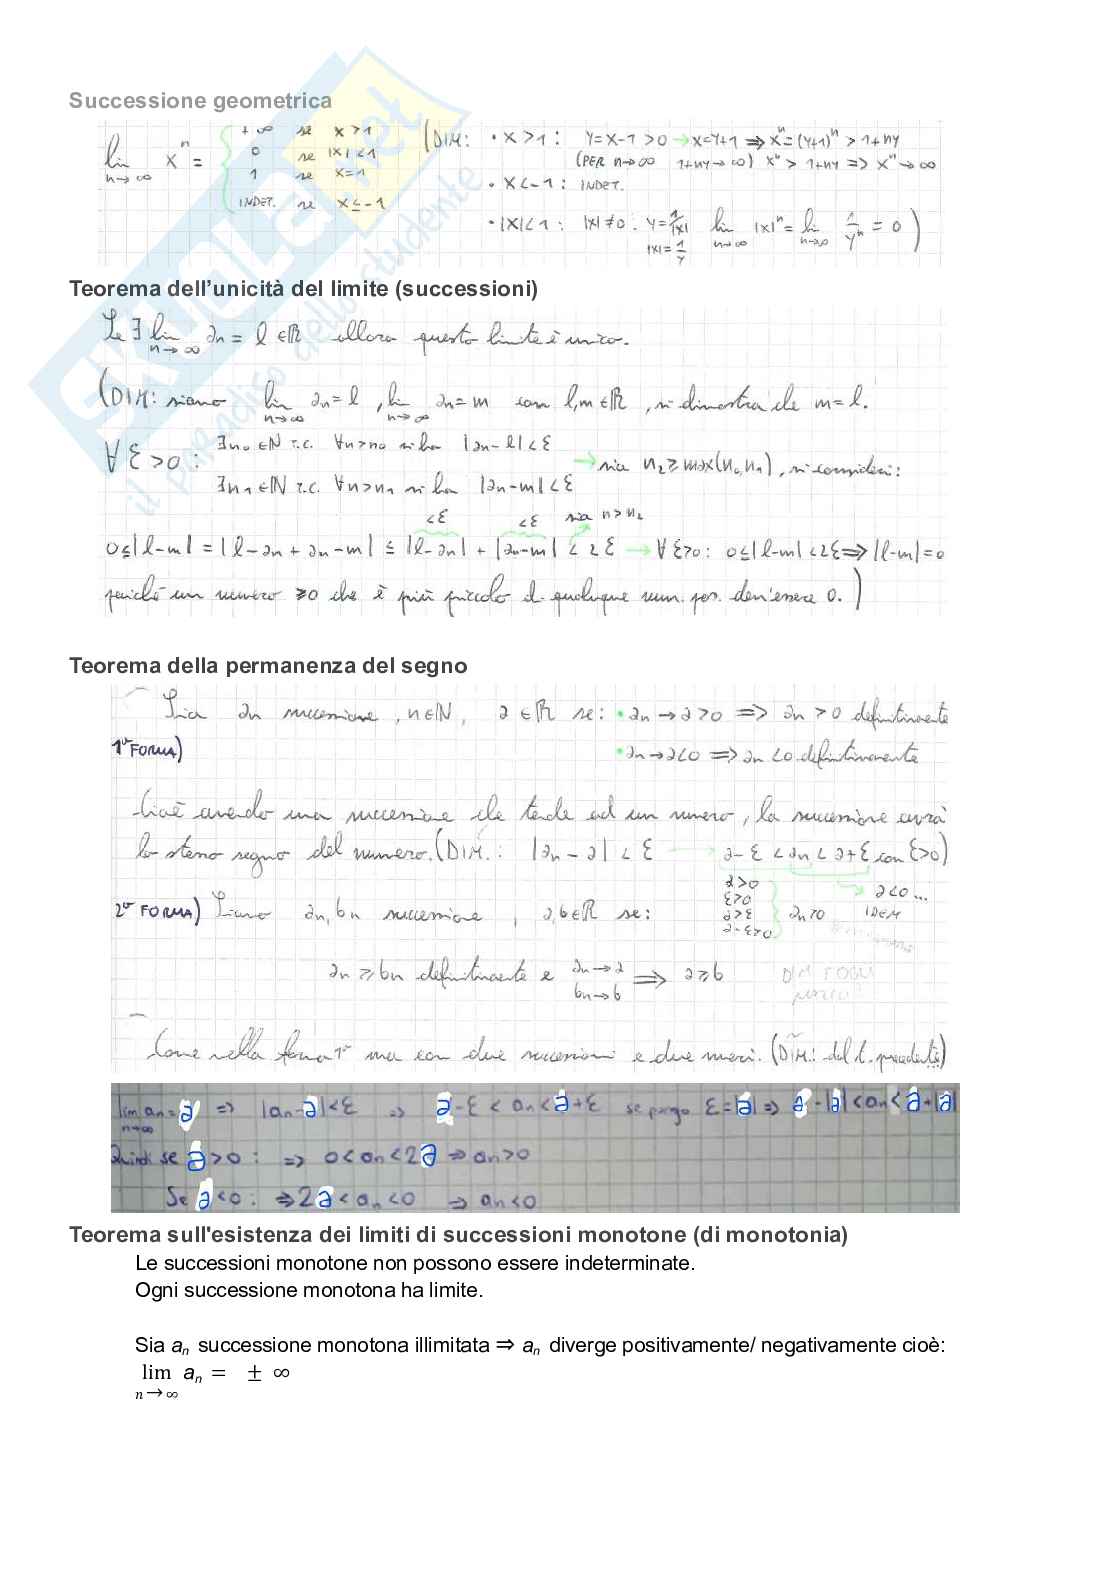 Successione geometrica
lim n→∞ xⁿ = { +∞ se x>1 (DIM: • x>1 : y=x-1>0 → x=y+1 ⇒ xⁿ=(y+1)ⁿ > 1+ny
0 se |x|<1 (PER n→∞ 1+ny→∞) xⁿ > 1+ny ⇒ xⁿ→∞
1 se x=1 • x<-1 : INDET.
INDET. se x≤-1
• |x|<1 : |x|≠0 : y=1/|x| lim n→∞ |x|ⁿ = lim n→∞ 1/yⁿ = 0 )
|x|=1/y
SKUOLA.net
il paradiso dello studente
Teorema dell’unicità del limite (successioni)
Se ∃ lim n→∞ an = l ∈ℝ allora questo limite è unico.
(DIM: siano lim n→∞ an=l , lim n→∞ an=m con l,m∈ℝ , si dimostra che m=l.
∀ε>0 : ∃n₀∈ℕ t.c. ∀n>n₀ si ha |an-l|<ε
∃n₁∈ℕ t.c. ∀n>n₁ si ha |an-m|<ε → sia n₂≥max(n₀,n₁) , si consideri:
<ε <ε sia n>n₂
0≤|l-m| = |l-an+an-m| ≤ |l-an| + |an-m| < 2ε → ∀ε>0: 0≤|l-m|<2ε ⇒ |l-m|=0
perché un numero ≥0 che è più piccolo di qualunque num. pos. dev'essere 0. )
Teorema della permanenza del segno
Sia an successione , n∈ℕ, a∈ℝ se: • an→a>0 ⇒ an>0 definitivamente
1ª FORMA) • an→a<0 ⇒ an<0 definitivamente
Cioè avendo una successione che tende ad un numero, la successione avrà
lo stesso segno del numero. (DIM.: |an-a|<ε → a-ε<an<a+ε con ε>0)
a>0
ε>0
a>ε
a-ε>0
an>0
a<0 ...
IDEM
2ª FORMA) Siano an, bn successione , a,b∈ℝ se:
an≥bn definitivamente e an→a bn→b ⇒ a≥b
Come nella forma 1ª ma con due successioni e due numeri. (DIM.: dal t. precedente)
lim n→∞ an=a ⇒ |an-a|<ε ⇒ a-ε<an<a+ε se pongo ε=|a| ⇒ a-|a|<an<a+|a|
Quindi se a>0 : ⇒ 0<an<2a ⇒ an>0
Se a<0 : ⇒ 2a<an<0 ⇒ an<0
Teorema sull'esistenza dei limiti di successioni monotone (di monotonia)
Le successioni monotone non possono essere indeterminate.
Ogni successione monotona ha limite.
Sia an successione monotona illimitata ⇒ an diverge positivamente/ negativamente cioè:
lim n→∞ an = ± ∞